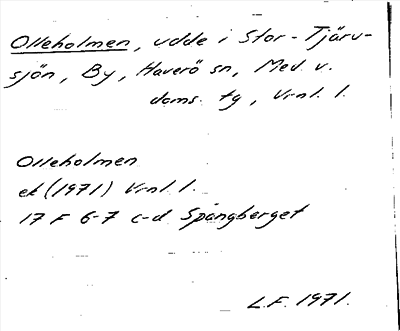 Olleholmen, udde i Stor-Tjäru-
sjön, By, Haverö sn, Med. v.
doms. tg, Vrnl. l.
Olleholmen
ek (1971) Vrnl. l.
17 F 6-7 c-d Spångberget
L.F. 1971.